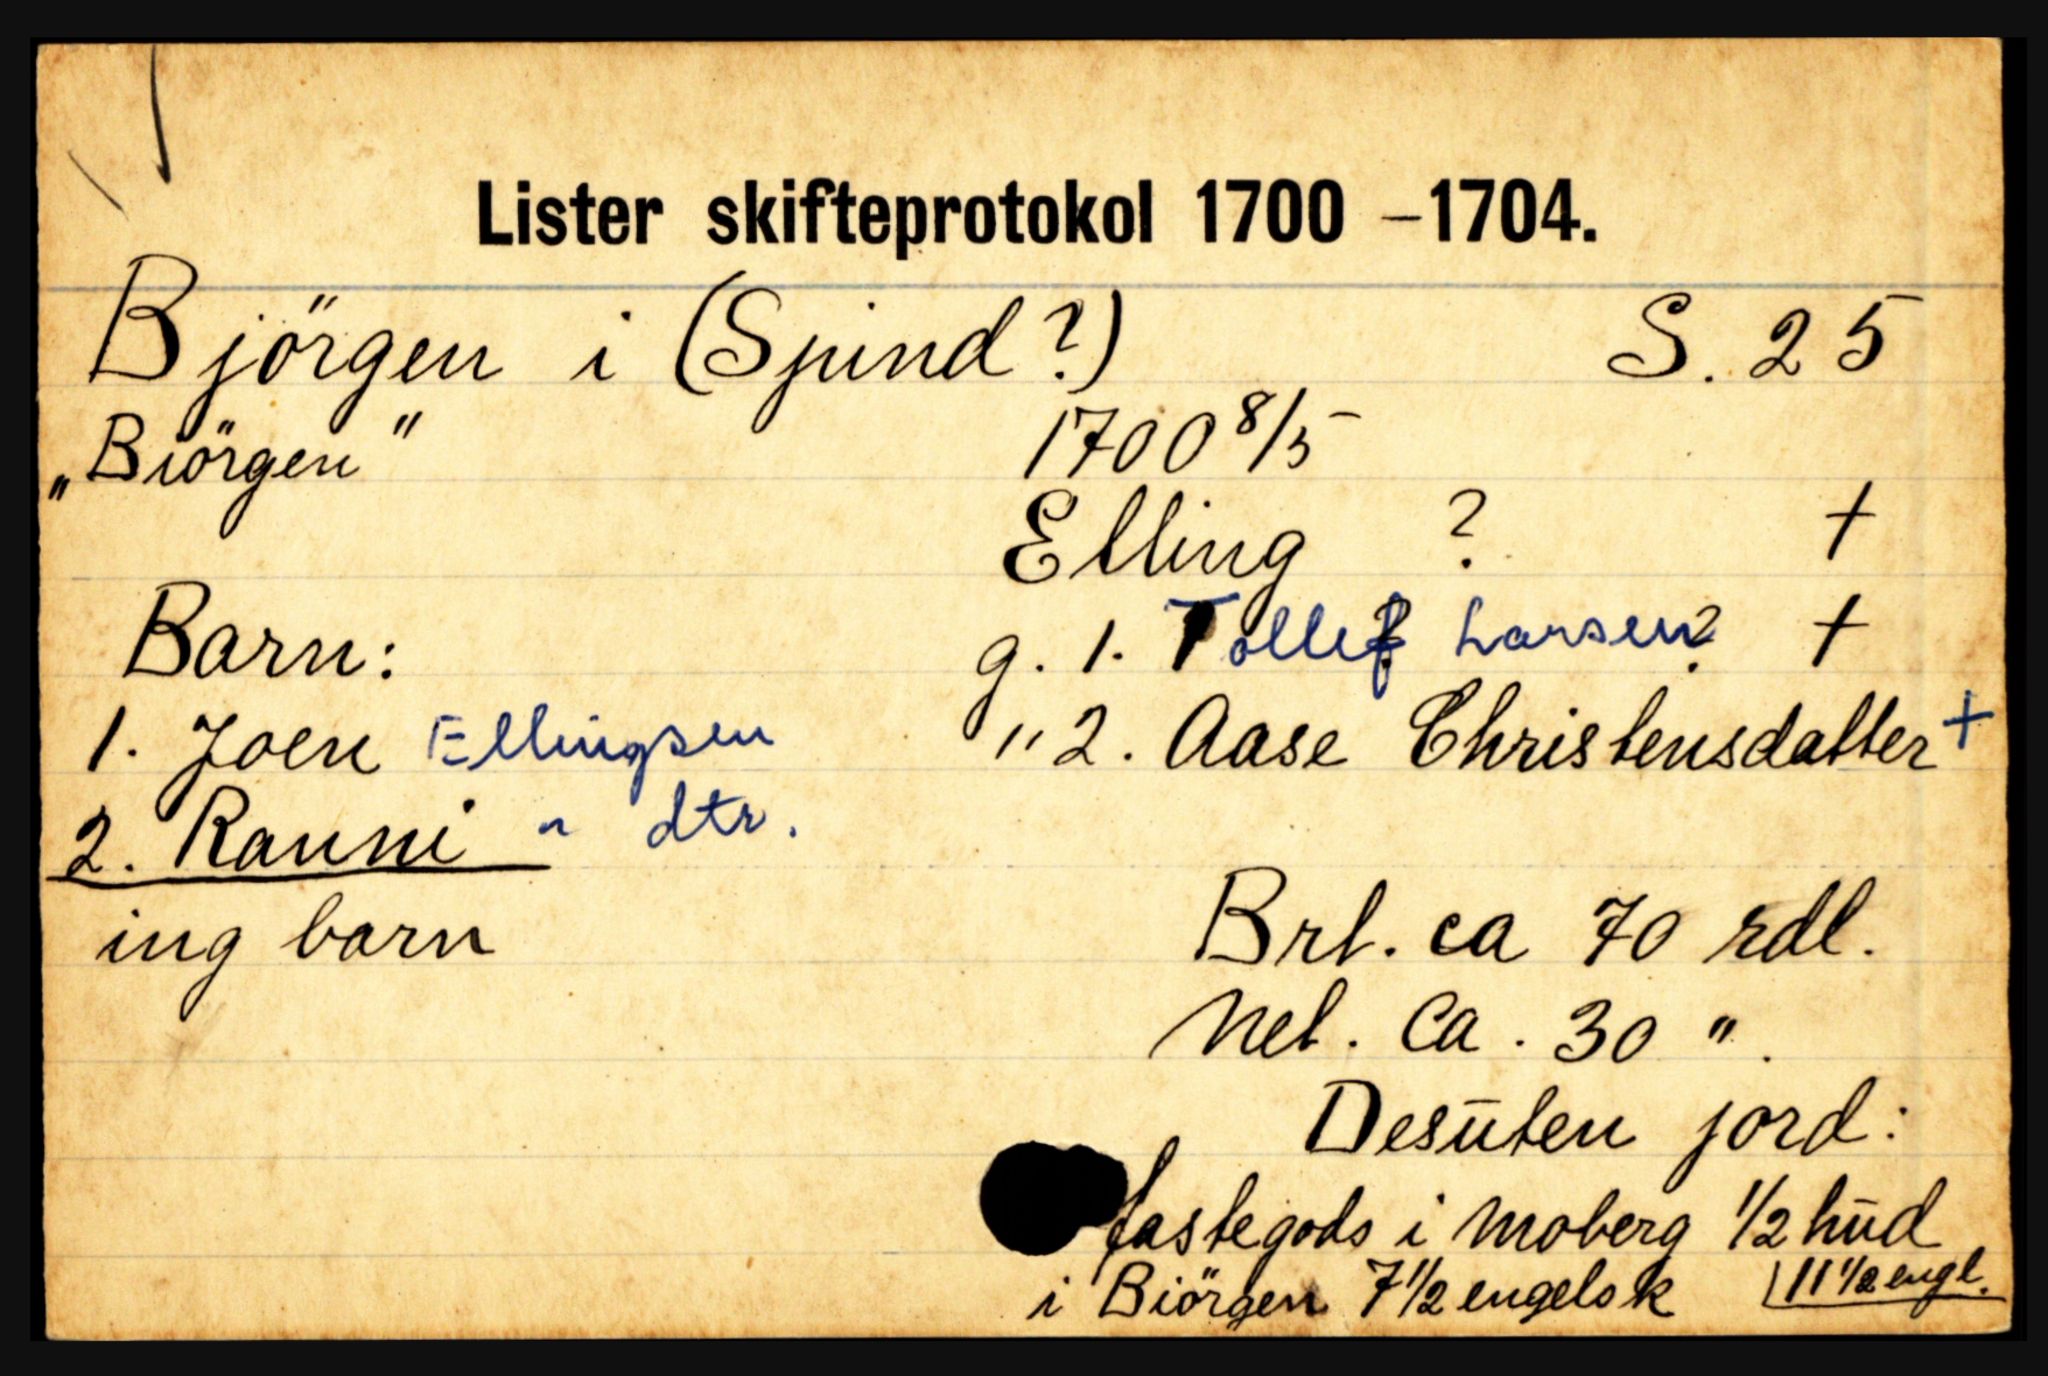 Lister skifteprotokol 1700 – 1704.
Björgen i (Spind?) S. 25
„Biörgen" 1700 8/5
Elling ? +
Barn: g. 1. Tollef Larsen? +
1. Joen Ellingsen " 2. Aase Christensdatter +
2. Ranni " dtr.
ing barn Brt. ca 70 rdl.
Net. Ca. 30 ".
Desuten jord:
fastegods i Moberg 1/2 hud
i Biörgen 7 1/2 engelsk 11 1/2 engl.